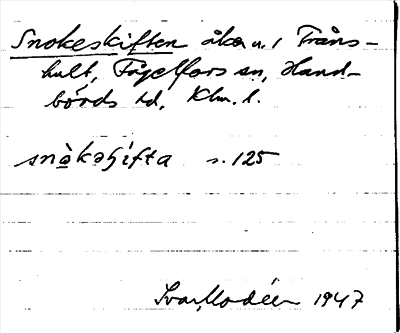 Snokeskiften åker u. 1 Fråns-
hult, Fågelfors sn, Hand-
börds hd, Klm. l.
snὰkəʃifta s. 125
Ivar Modéer 1947